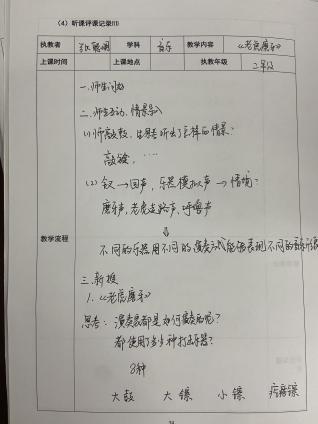 (4) 听课评课记录(1)
执教者 学科 音乐 教学内容 《老虎磨牙》
上课时间 上课地点 执教年级 二年级
教学流程
一.师生问好
二.师生互动,情景导入
(1)师敲大鼓,生思考听出了怎样的情景?
敲鼓,……
(2) 钹→回声,乐器模拟声→情境:
磨牙声,老虎走路声,呼噜声
⇓
不同的乐器用不同的演奏方式能够表现不同的音乐形象
三.新授
1.《老虎磨牙》
思考:演奏家都是如何演奏的呢?
都使用了多少种打击乐器?
8种
大鼓 大镲 小镲